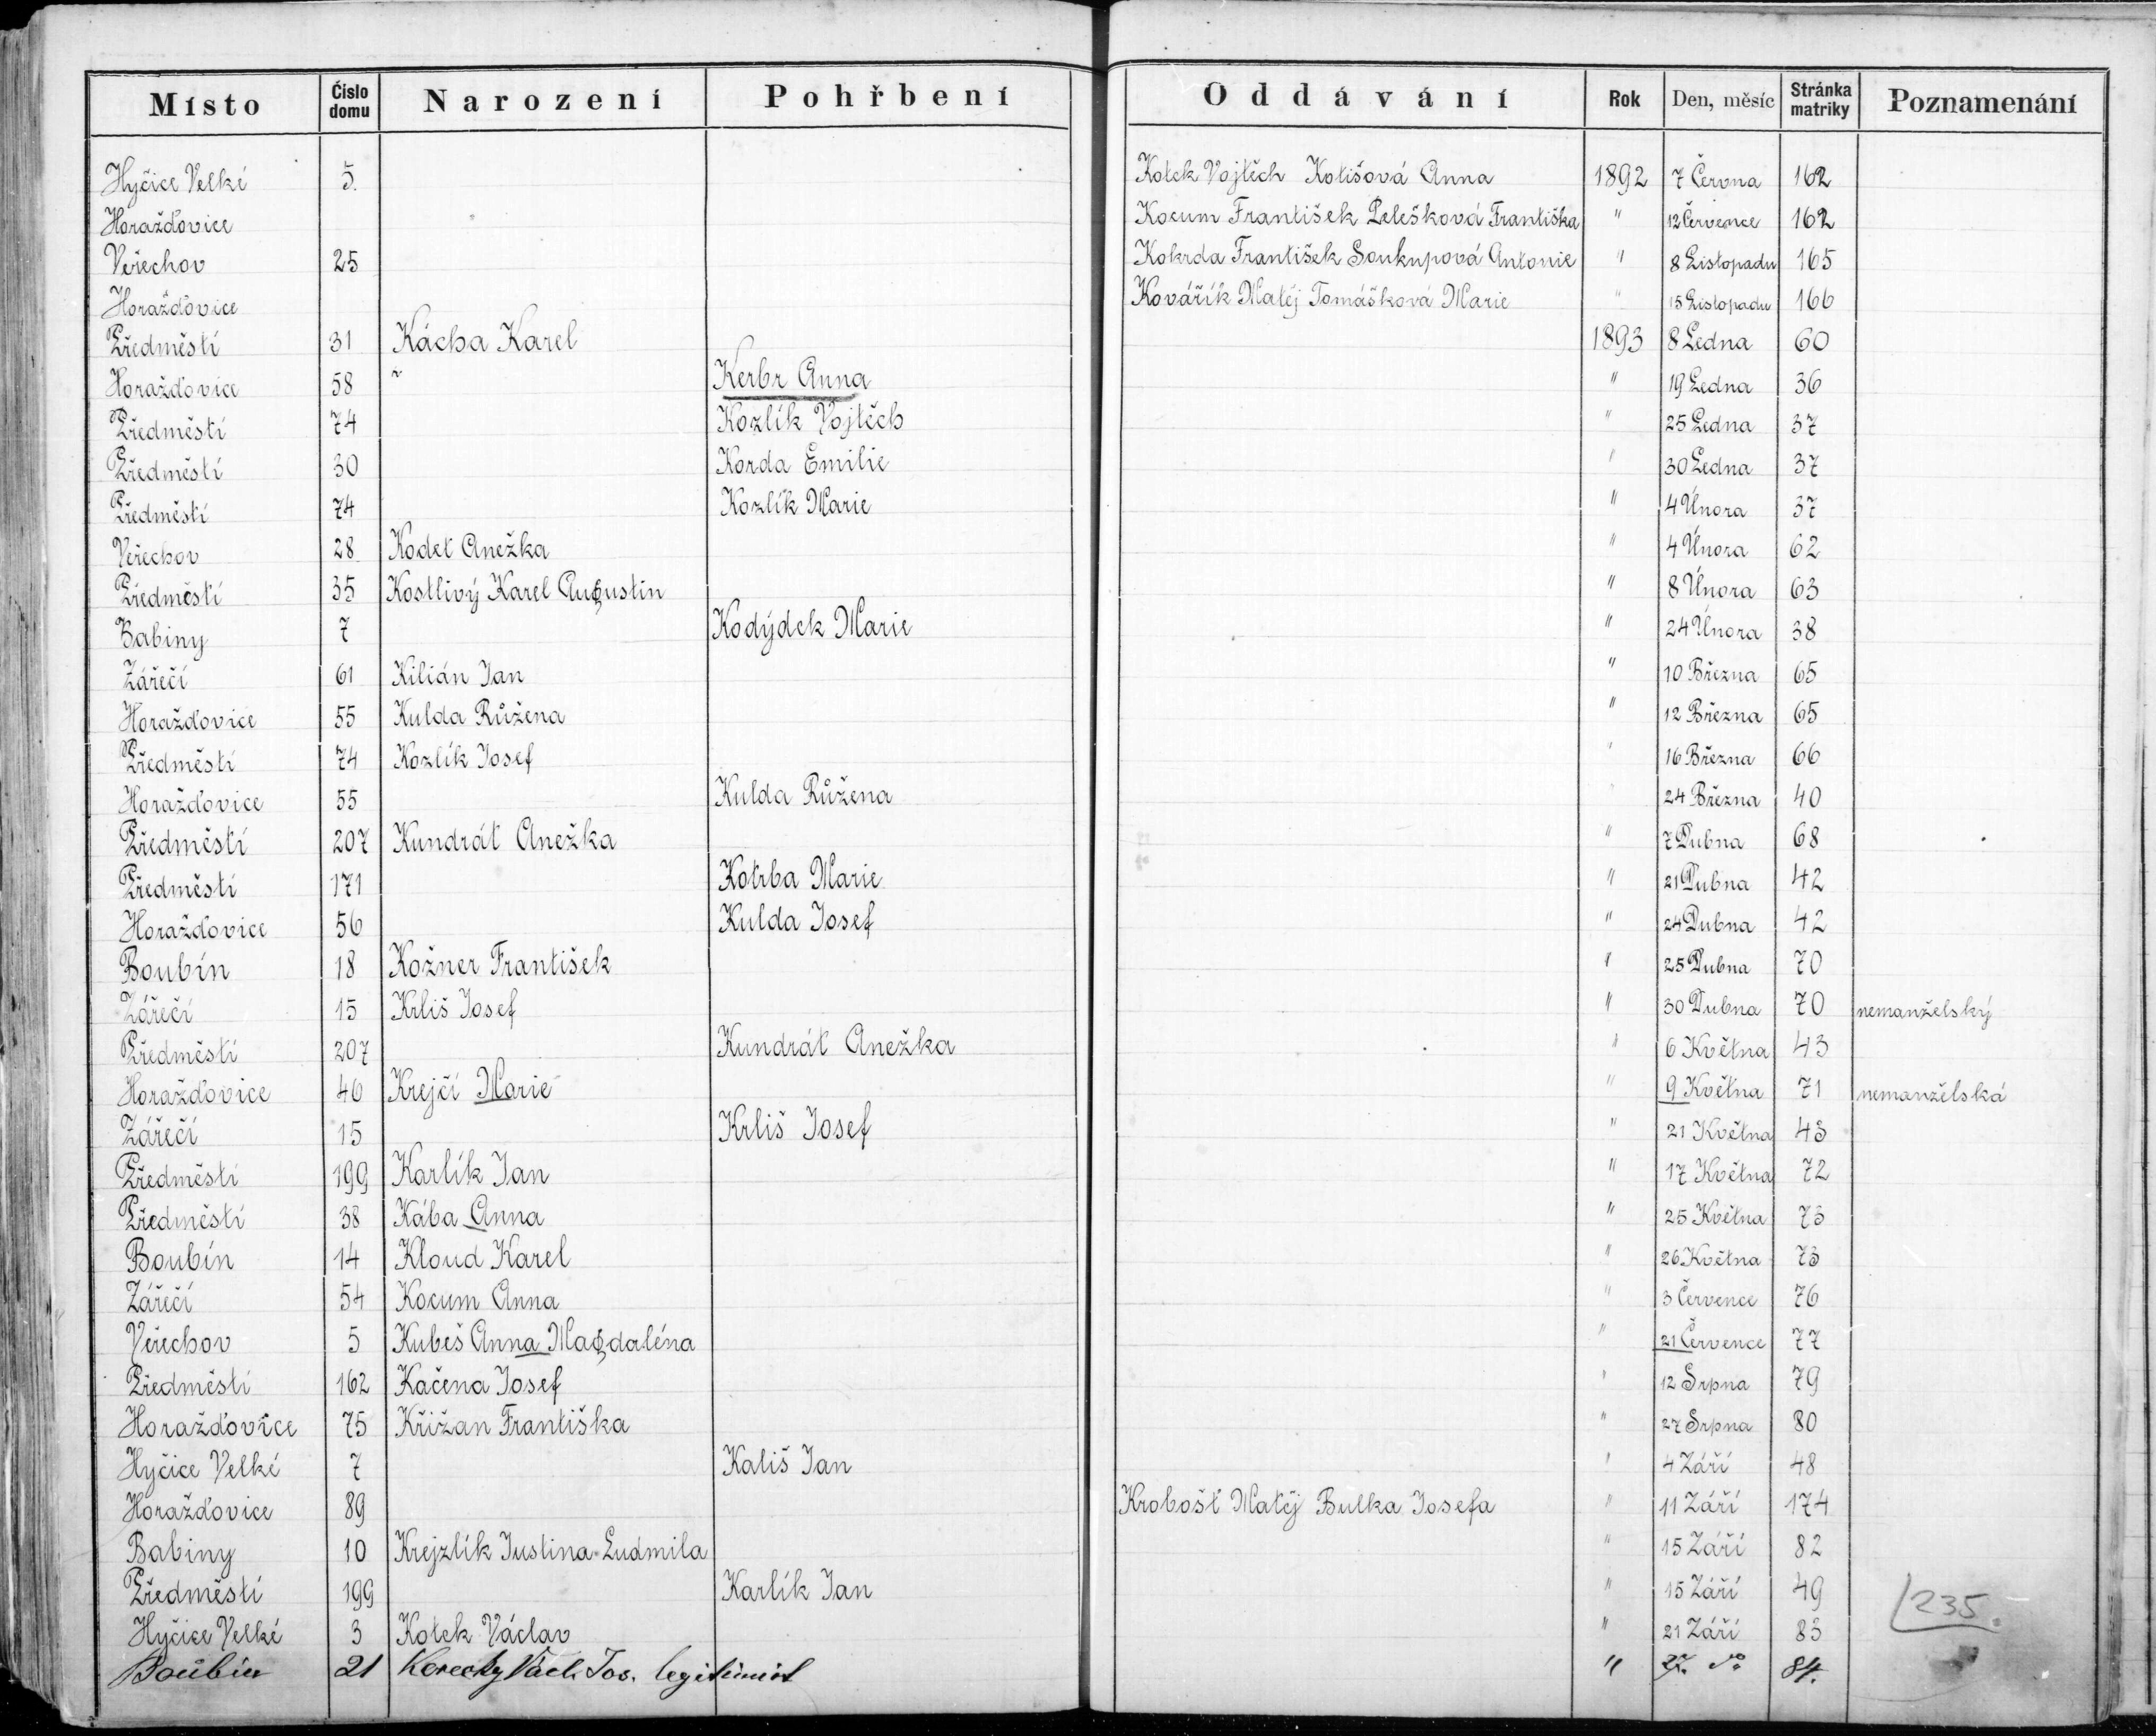 Místo Číslo domu Narození Pohřbení Oddávání Rok Den, měsíc Stránka matriky Poznamenání
Hyčice Velké 5. Kotek Vojtěch Kotišová Anna 1892 7 Června 162
Horažďovice Kocum František Pelešková Františka " 12 Července 162
Veřechov 25 Kokrda František Soukupová Antonie " 8 Listopadu 165
Horažďovice Kovářík Matěj Tomášková Marie " 15 Listopadu 166
Předměstí 31 Kácha Karel 1893 8 Ledna 60
Horažďovice 58 Kerbr Anna " 19 Ledna 36
Předměstí 74 Kozlík Vojtěch " 25 Ledna 37
Předměstí 30 Korda Emilie " 30 Ledna 37
Předměstí 74 Kozlík Marie " 4 Února 37
Veřechov 28 Kodet Anežka " 4 Února 62
Předměstí 35 Kostlivý Karel Augustin " 8 Února 63
Babiny 7 Kodýdek Marie " 24 Února 38
Zářečí 61 Kilián Jan " 10 Března 65
Horažďovice 55 Kulda Růžena " 12 Března 65
Předměstí 74 Kozlík Josef " 16 Března 66
Horažďovice 55 Kulda Růžena " 24 Března 40
Předměstí 207 Kundrát Anežka " 7 Dubna 68
Předměstí 171 Kotrba Marie " 21 Dubna 42
Horažďovice 56 Kulda Josef " 24 Dubna 42
Boubín 18 Kožner František " 25 Dubna 70
Zářečí 15 Krliš Josef " 30 Dubna 70 nemanželský
Předměstí 207 Kundrát Anežka " 6 Května 43
Horažďovice 46 Krejčí Marie " 9 Května 71 nemanželská
Zářečí 15 Krliš Josef " 21 Května 43
Předměstí 199 Karlík Jan " 17 Května 72
Předměstí 38 Kába Anna " 25 Května 73
Boubín 14 Kloud Karel " 26 Května 73
Zářečí 54 Kocum Anna " 3 Července 76
Veřechov 5 Kubeš Anna Magdaléna " 21 Července 77
Předměstí 162 Kačena Josef " 12 Srpna 79
Horažďovice 75 Křižan Františka " 27 Srpna 80
Hyčice Velké 7 Kališ Jan " 4 Září 48
Horažďovice 89 Krobošt Matěj Bulka Josefa " 11 Září 174
Babiny 10 Krejzlík Justina Ludmila " 15 Září 82
Předměstí 199 Karlík Jan " 15 Září 49
235.
Hyčice Velké 3 Kotek Václav " 21 Září 83
Boubín 21 Korecky Václ. Jos. " 27. 84.